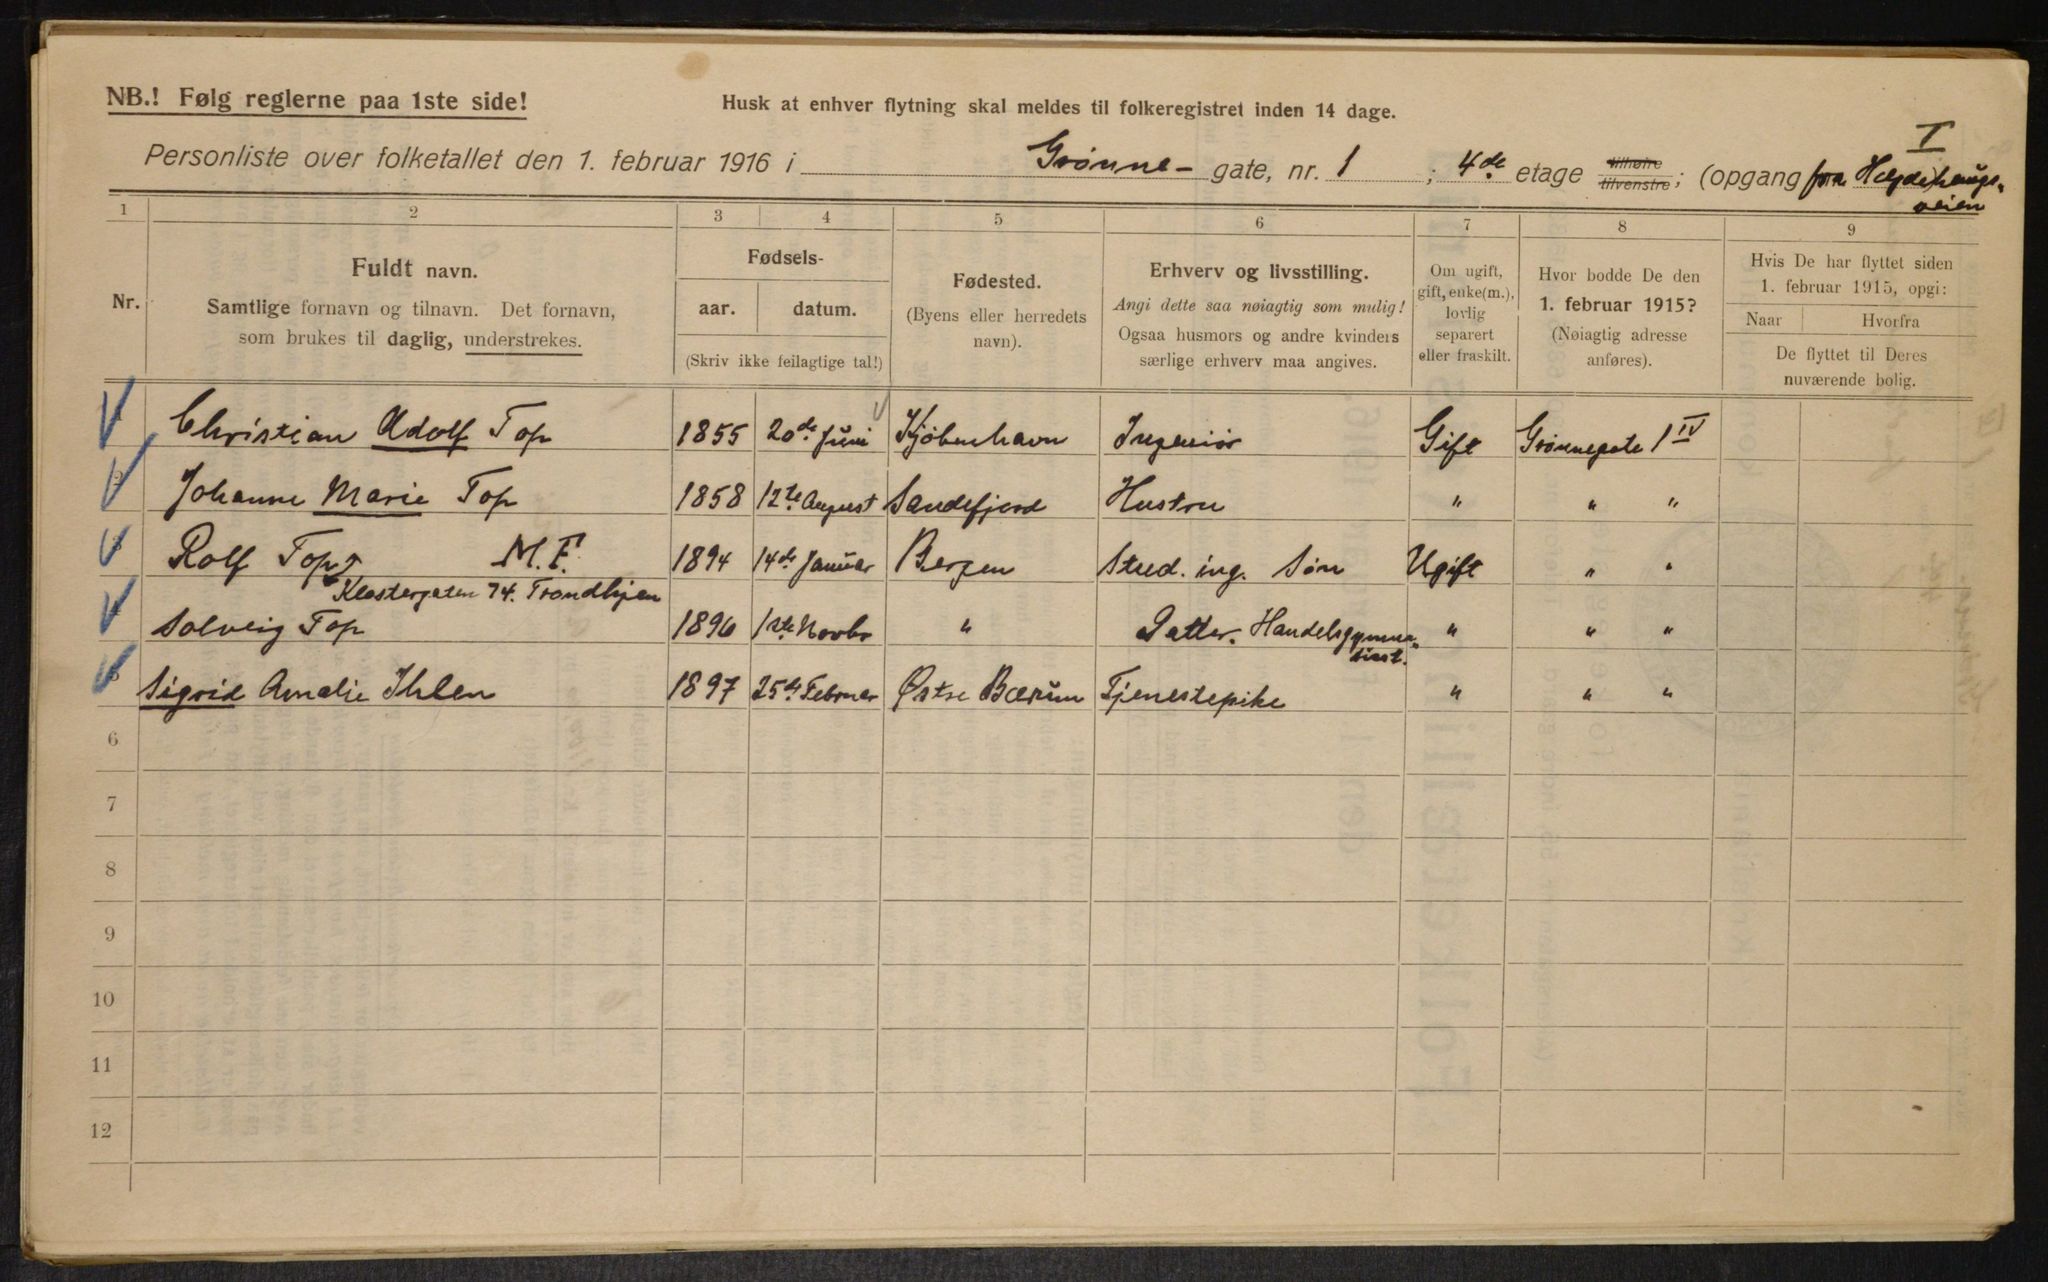 NB.! Følg reglerne paa 1ste side!
Husk at enhver flytning skal meldes til folkeregistret inden 14 dage.
I
Personliste over folketallet den 1. februar 1916 i Grønne- gate, nr. 1; 4de etage tilhøire tilvenstre; (opgang fra Hegdehaugs-
veien
1 2 3 4 5 6 7 8 9
Nr.
Fuldt navn.
Samtlige fornavn og tilnavn. Det fornavn,
som brukes til daglig, understrekes.
Fødsels-
aar. datum.
(Skriv ikke feilagtige tal!)
Fødested.
(Byens eller herredets
navn).
Erhverv og livsstilling.
Angi dette saa nøiagtig som mulig!
Ogsaa husmors og andre kvinders
særlige erhverv maa angives.
Om ugift,
gift, enke(m.),
lovlig
separert
eller fraskilt.
Hvor bodde De den
1. februar 1915?
(Nøiagtig adresse
anføres).
Hvis De har flyttet siden
1. februar 1915, opgi:
Naar Hvorfra
De flyttet til Deres
nuværende bolig.
Christian Adolf Top 1855 20de Juni Kjøbenhavn Ingeniør Gift Grønnegate 1 IV
Johanne Marie Top 1858 12te August Sandefjord Hustru " " "
Rolf Top M.F. 1894 14de Januar Bergen Stud. ing. Søn Ugift " "
Klostergaten 74. Trondhjem
Solveig Top 1896 1ste Novbr " Datter. Handelsgymna-
siast. " " "
5 Sigrid Amalie Ihlen 1897 25de Februar Østre Bærum Tjenestepike " " "
6
7
8
9
10
11
12